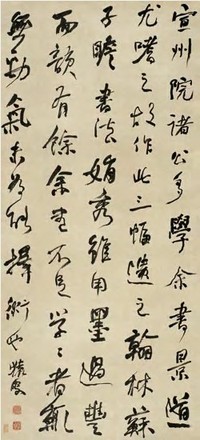 宣州院諸公多學余書景道
尤嗜之故作此三幅遺之翰林蘇
子瞻書法娟秀雖用墨過豐
而韻有餘余書不足學々者輒
無勁氣未為能擇術也